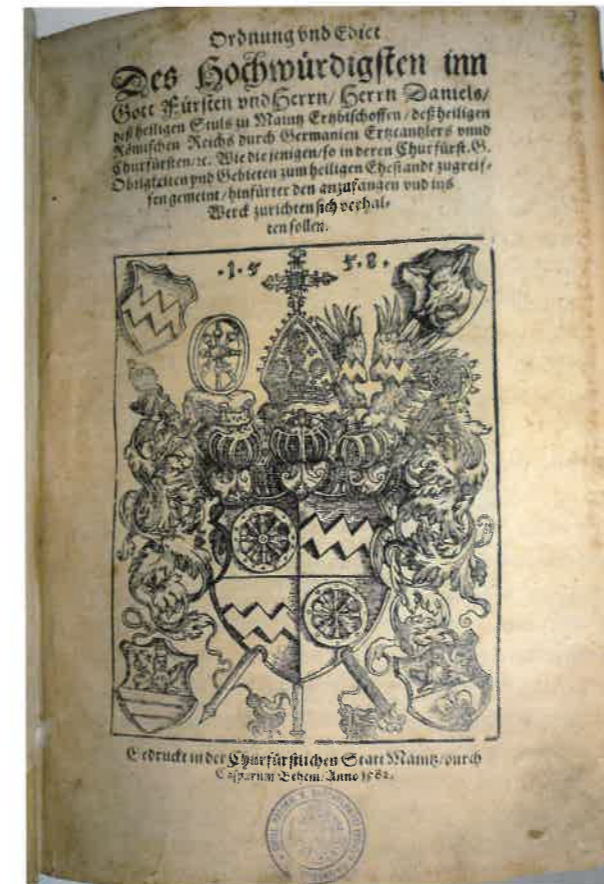 Ordnung vnd Edict
Des Hochwürdigsten inn
Gott Fürsten vnd Herrn/ Herrn Daniels/
deß heiligen Stuls zu Maintz Ertzbischoffen/ deß heiligen
Römischen Reichs durch Germanien Ertzcantzlers vnnd
Churfürsten/ ꝛc. Wie die jenigen/ so in deren Churfürst. G.
Obrigkeiten vnd Gebieten zum heiligen Ehestandt zugreif-
fen gemeint/ hinfürter den anzufangen vnd ins
Werck zurichten sich verhal-
ten sollen.
.1.5 5.8.
Gedruckt in der Churfürstlichen Statt Maintz/ durch
Casparum Behem/ Anno 1582.